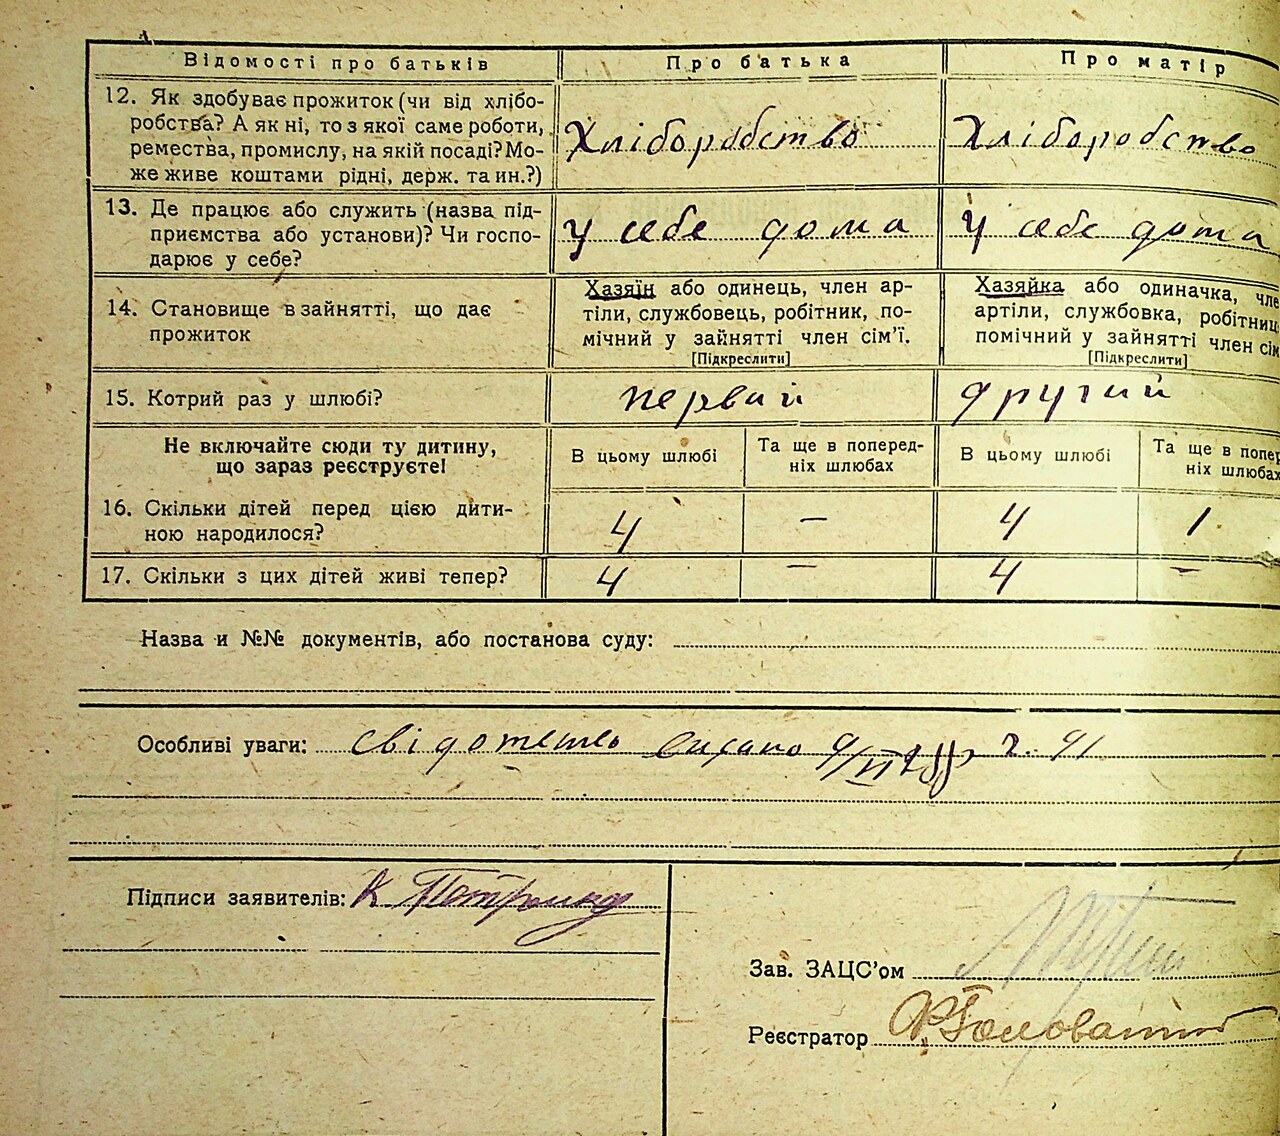 Відомості про батьків Про батька Про матір
12. Як здобуває прожиток (чи від хлібо-
робства? А як ні, то з якої саме роботи,
ремества, промислу, на якій посаді? Мо-
же живе коштами рідні, держ. та ин.?)
Хліборобство Хліборобство
13. Де працює або служить (назва під-
приємства або установи)? Чи госпо-
дарює у себе?
у себе дома у себе дома
14. Становище в зайнятті, що дає
прожиток
Хазяїн або одинець, член ар-
тіли, службовець, робітник, по-
мічний у зайнятті член сім'ї.
[Підкреслити]
Хазяйка або одиначка, чле
артіли, службовка, робітниц
помічний у зайнятті член сім
[Підкреслити]
15. Котрий раз у шлюбі? первий другий
Не включайте сюди ту дитину,
що зараз реєструєте!
В цьому шлюбі
Та ще в поперед-
ніх шлюбах
В цьому шлюбі
Та ще в попер
ніх шлюбах
16. Скільки дітей перед цією дити-
ною народилося?
4 — 4 1
17. Скільки з цих дітей живі тепер? 4 — 4 —
Назва и №№ документів, або постанова суду:
Особливі уваги: 
Підписи заявителів: К
Зав. ЗАЦС'ом
Реєстратор